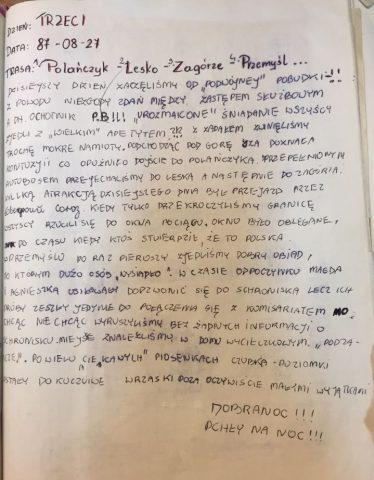 DZIEŃ: TRZECI
DATA: 87-08-27
TRASA: 1. Polańczyk - 2. Lesko - 3. Zagórze - 4. Przemyśl ...
DZISIEJSZY DZIEŃ ZACZĘLIŚMY OD "PODWÓJNEJ" POBUDKI-!!
Z POWODU NIEZGODY ZDAŃ MIĘDZY ZASTĘPEM SŁUŻBOWYM
A DH. OCHOTNIK P.B!!! "UROZMAICONE" ŚNIADANIE WSZYSCY
ZJEDLI Z "WIELKIM" APETYTEM Z ZAPAŁEM ZWINĘLIŚMY
TROCHĘ MOKRE NAMIOTY. PODCHODZĄC POD GÓRĘ IZA DOZNAŁA
KONTUZJI CO OPÓŹNIŁO DOJŚCIE DO POLAŃCZYKA. PRZEPEŁNIONYM
AUTOBUSEM PRZEJECHALIŚMY DO LESKA A NASTĘPNIE DO ZAGÓRZA.
WIELKĄ ATRAKCJĄ DZISIEJSZEGO DNIA BYŁ PRZEJAZD PRZEZ
KIEDY TYLKO PRZEKROCZYLIŚMY GRANICĘ
WSZYSCY RZUCILI SIĘ DO OKNA POCIĄGU. OKNO BYŁO OBLEGANE,
PO CZASU KIEDY KTOŚ STWIERDZIŁ ŻE TO POLSKA.
W PRZEMYŚLU PO RAZ PIERWSZY ZJEDLIŚMY DOBRY OBIAD,
PO KTÓRYM DUŻO OSÓB "WYSIADŁO". W CZASIE ODPOCZYNKU MAGDA
I AGNIESZKA USIŁOWAŁY DODZWONIĆ SIĘ DO SCHRONISKA LECZ ICH
PRÓBY ZESZŁY JEDYNIE DO POŁĄCZENIA SIĘ Z KOMISARIATEM MO.
CHCĄC NIE CHCĄC WYRUSZYLIŚMY BEZ ŻADNYCH INFORMACJI O
SCHRONISKU. MIEJSCE ZNALEŹLIŚMY W DOMU WYCIECZKOWYM
PO WIELU CIEKAWYCH PIOSENKACH
DO WRZASKI POZA OCZYWIŚCIE MAŁYMI WYJĄTKAMI
DOBRANOC!!!
PCHŁY NA NOC!!!